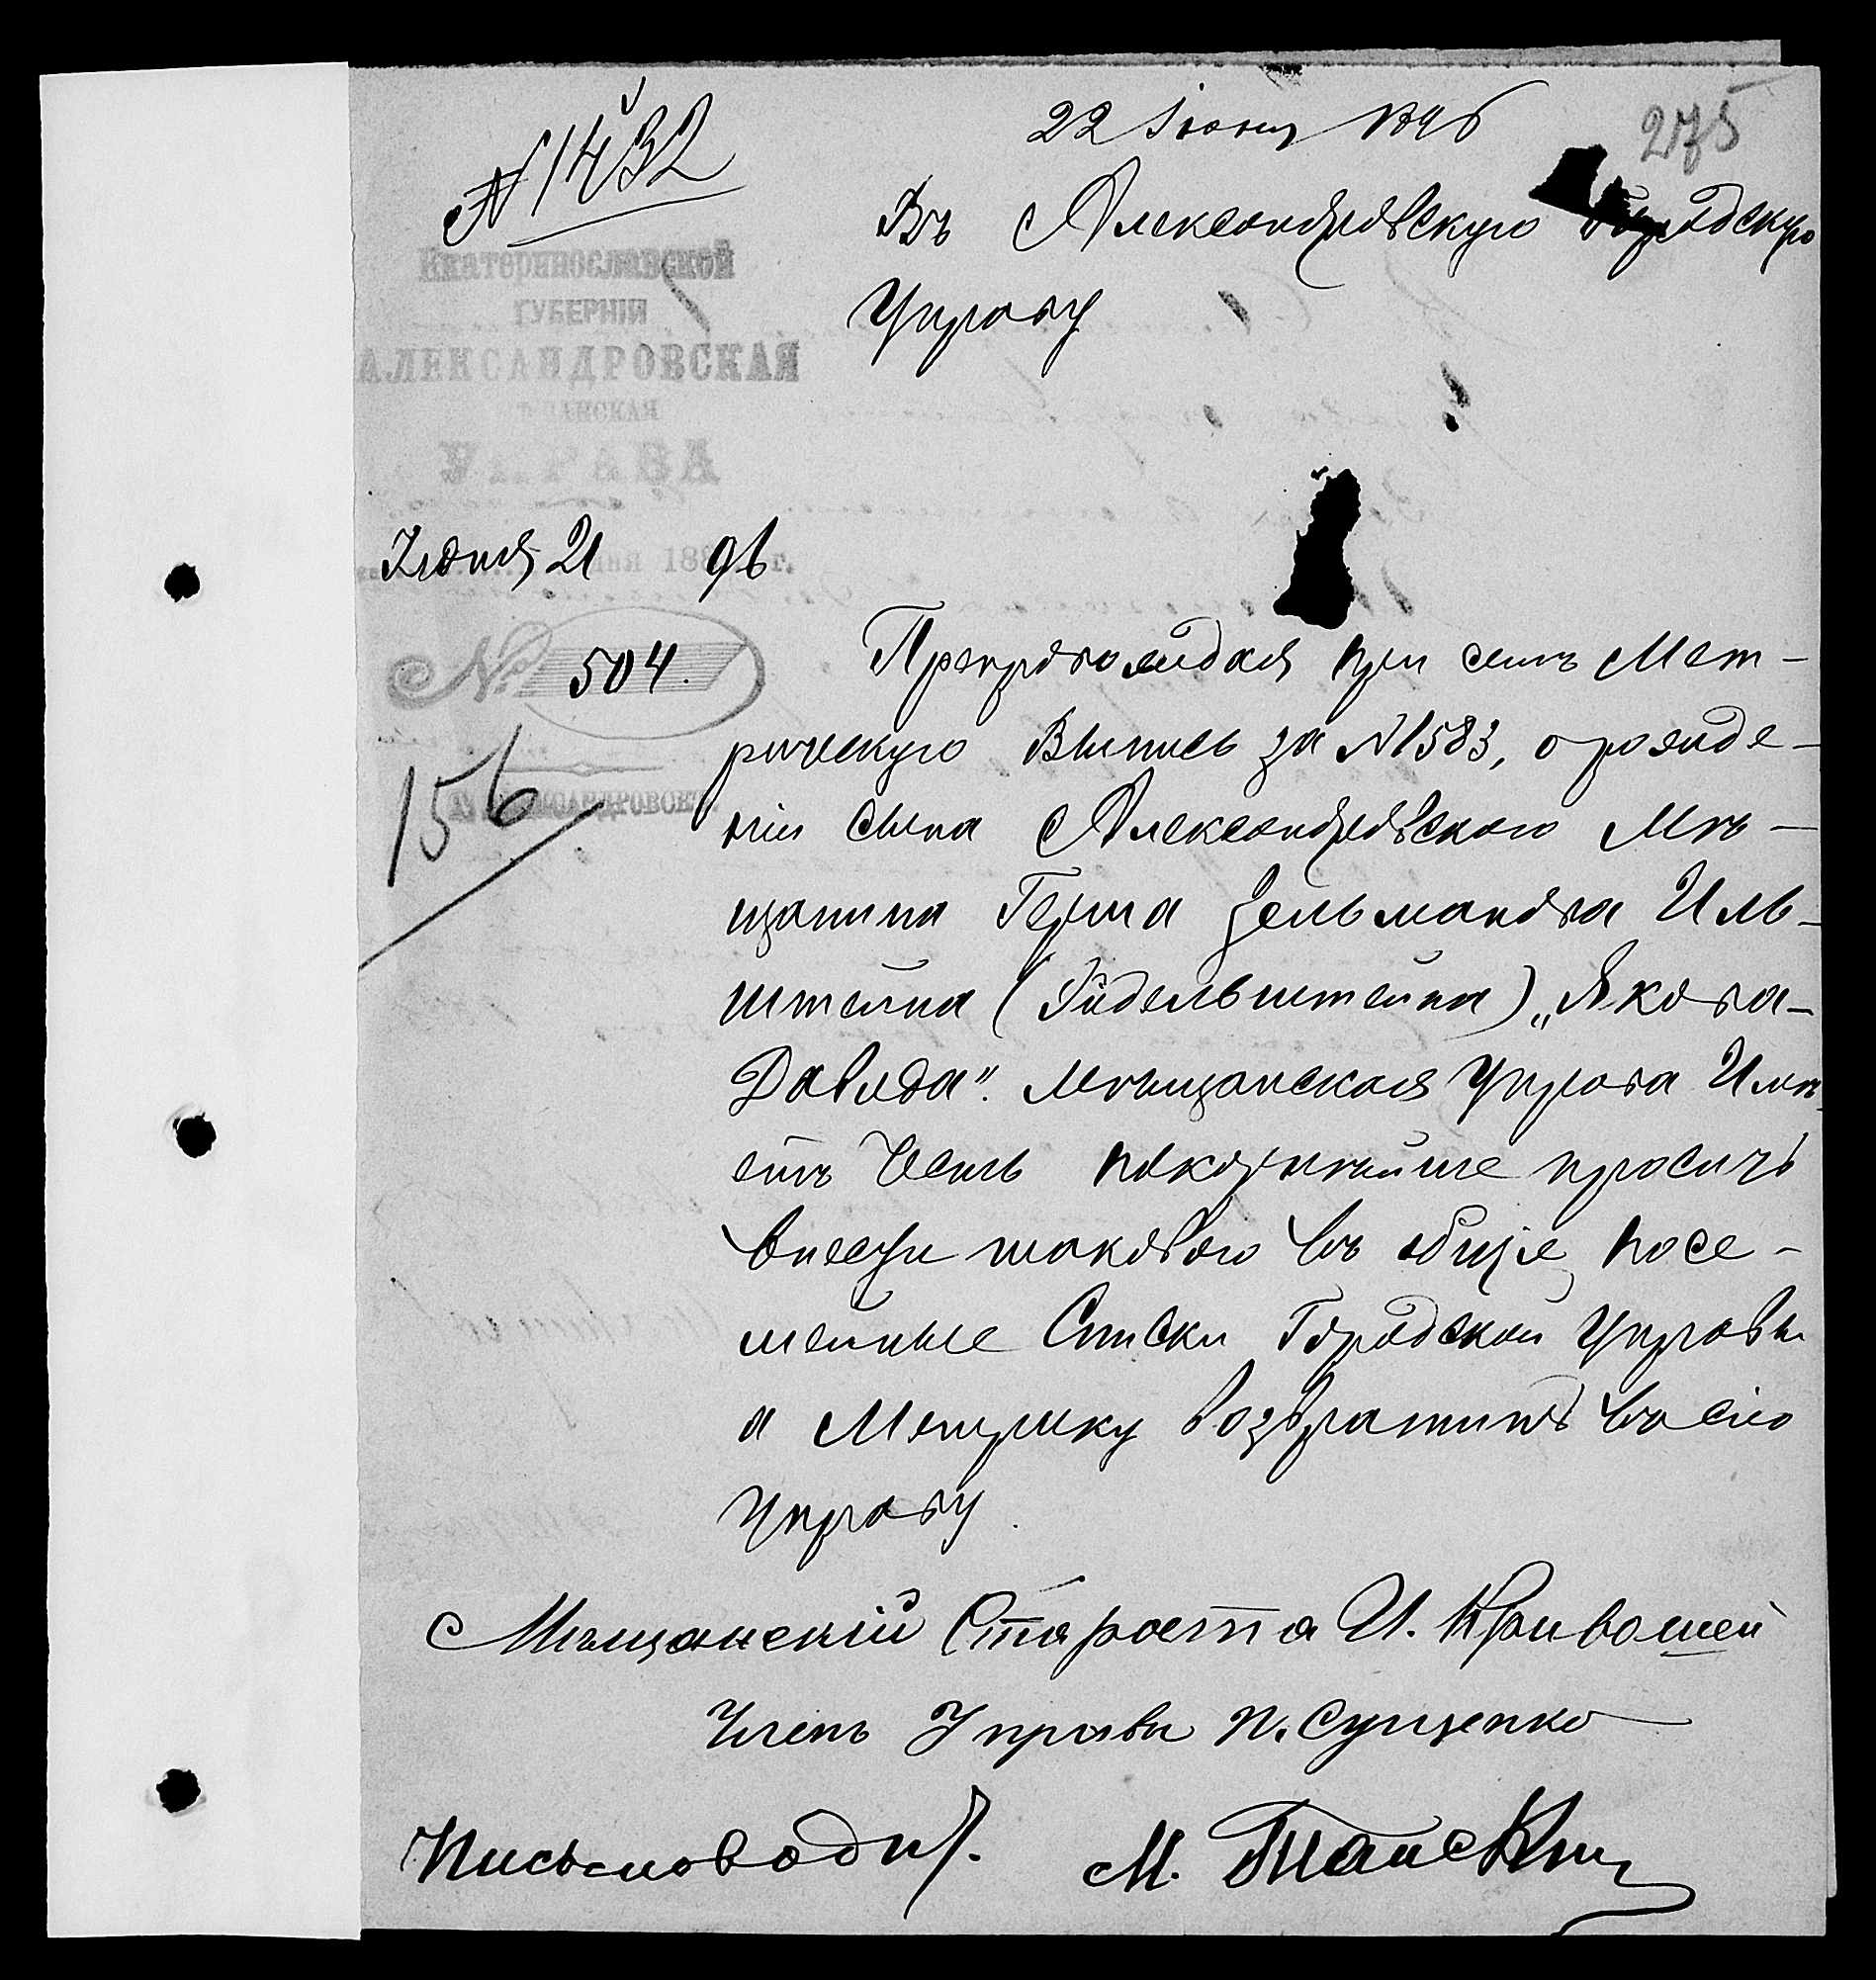 № 1432
22 Іюня 1896
275
Въ Александровскую Городскую
Управу
Екатеринославской
ГУБЕРНІИ
АЛЕКСАНДРОВСКАЯ
УПРАВА
Іюня 21 дня 1896 г.
№ 504.
156
Г. АЛЕКСАНДРОВСКЪ.
Препровождая при семъ Мет-
рическую Выпись за № 1583, о рожде-
ніи сына Александровскаго Мѣ-
щанина Герша Зельманова Иль-
штейна (Гидельштейна) „Якова-
Давида". Мѣщанская Управа Имѣ-
етъ Честь покорнѣйше просить
внести таковаго въ общіе посе-
мейные Списки Городской Управы
а Метрику возвратить въ сію
Управу.
Мѣщанскій Староста И. Кривошей
Членъ Управы П. Сущенко
Письмоводит.
М.